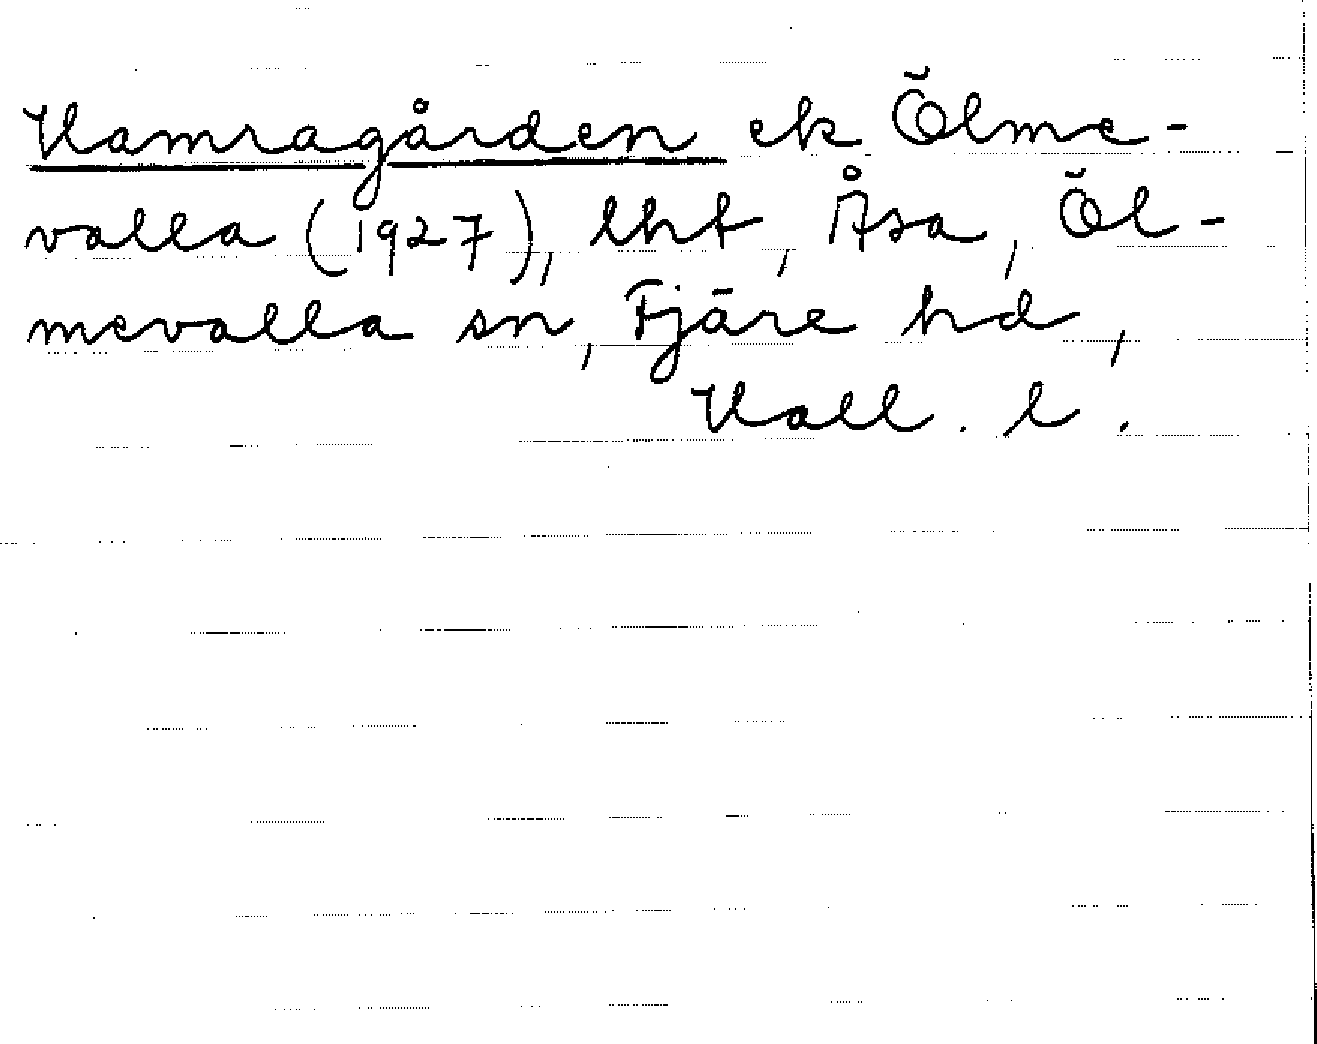 Hamragården ek Ölme-
valla (1927), lht, Åsa, Öl-
mevalla sn, Fjäre hd,
Hall. l.